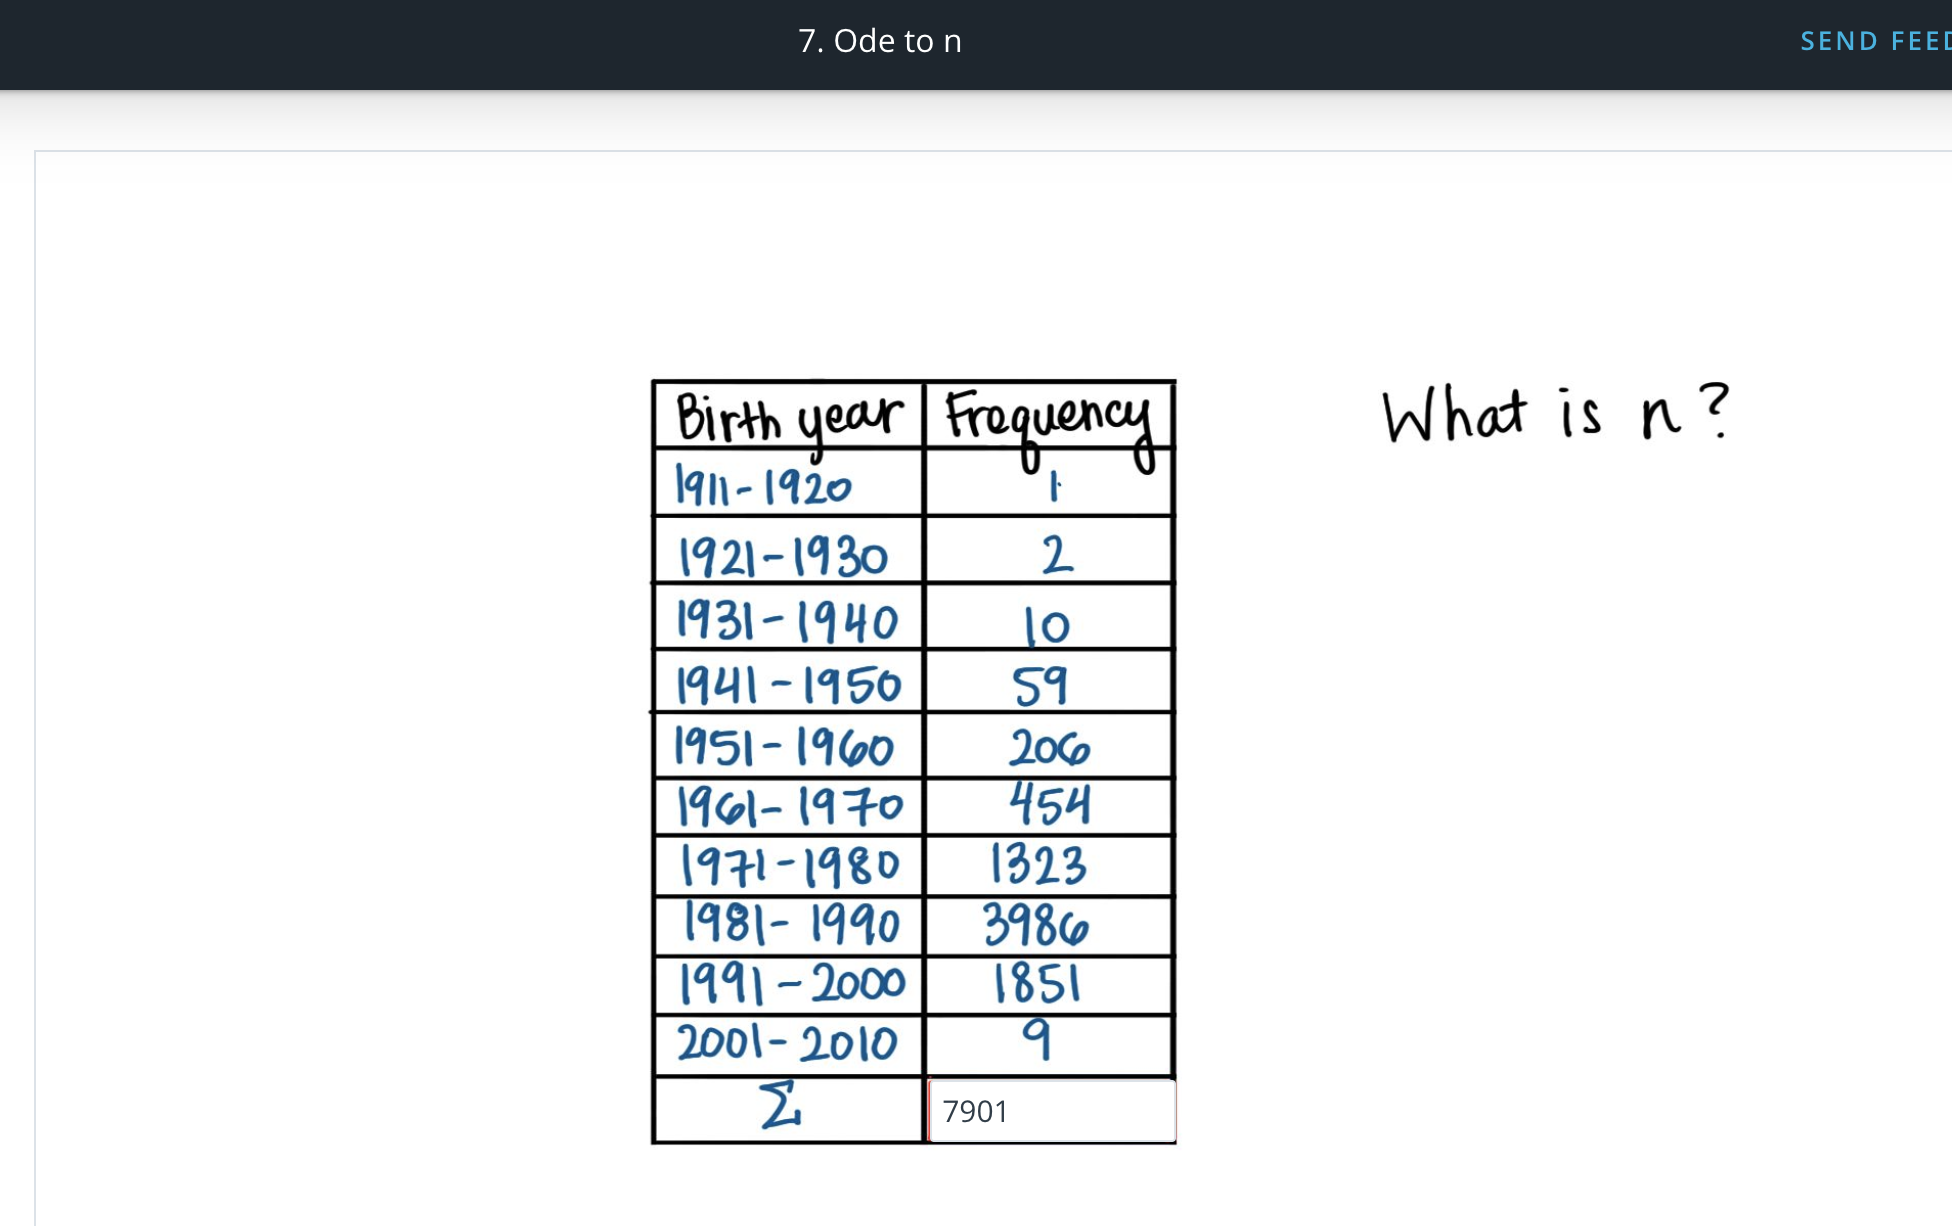 7. Ode to n
SEND FEED
What is n?
Birth year Frequency
1911-1920 1
1921-1930 2
1931-1940 10
1941-1950 59
1951-1960 206
1961-1970 454
1971-1980 1323
1981-1990 3986
1991-2000 1851
2001-2010 9
Σ 7901